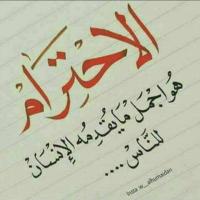 الاحترام
هو اجمل ما يقدمه الإنسان
للناس ....
Insta w_alhumaidan